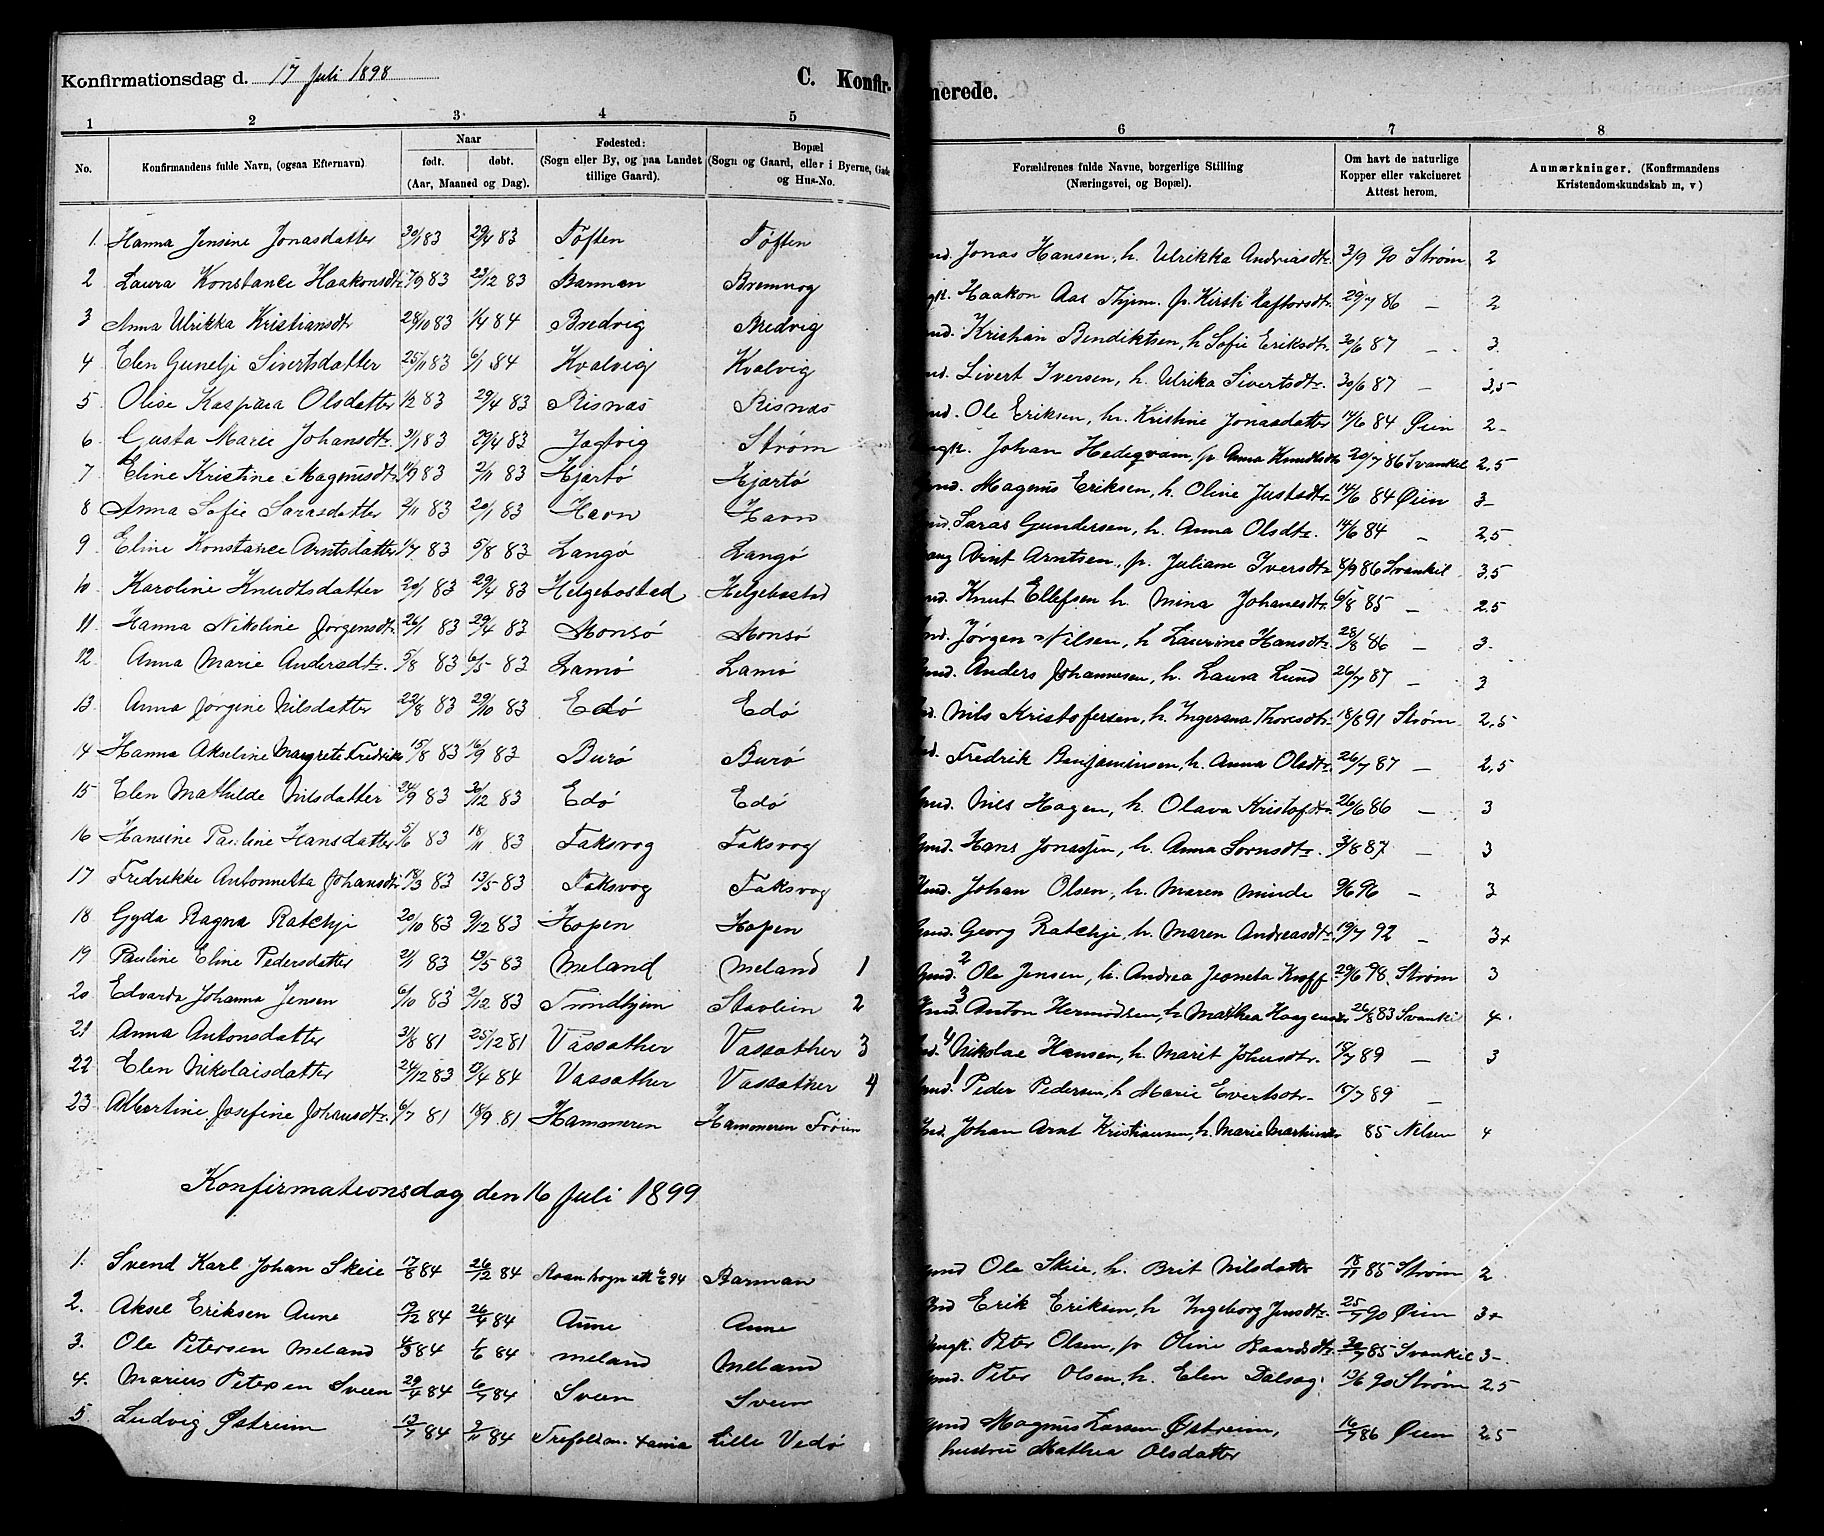 Konfirmationsdag d. 17 Juli 1898 C. Konfir-
1 2 3 4 5
No. Konfirmandens fulde Navn, (ogsaa Efternavn) Naar født. døbt. (Aar, Maaned og Dag). Fødested: (Sogn eller By, og paa Landet tillige Gaard). Bopæl (Sogn og Gaard, eller i Byerne, Gade og Hus-No.
1. Hanna Jensine Jonasdatter 30/1 83 29/4 83 Tøften Tøften
2 Laura Konstance Haakonsdtr 7/9 83 23/12 83 Barman Bremnog
3 Anna Ulrikka Kristiansdtr 28/10 83 1/4 84 Bredvig Bredvig
4 Elen Gunelje Sivertsdatter 25/11 83 6/1 84 Kvalvig Kvalvig
5 Olise Kaspara Olsdatter 1/2 83 29/4 83 Risnæs Risnæs
6. Gusta Marie Johansdtr. 31/1 83 29/4 83 Jagtvig Strøm
7 Eline Kristine Magnusdtr 1/9 83 2/11 83 Hjertø Hjertø
8 Anna Sofie Sarasdatter 2/11 83 20/1 83 Havn Havn
9 Eline Konstance Arntsdatter 1/7 83 5/8 83 Langø Langø
10 Karoline Knudtsdatter 20/1 83 29/4 83 Helgebostad Helgebostad
11 Hanna Nikoline Jørgensdtr 26/1 83 29/4 83 Monsø Monsø
12. Anna Marie Andersdtr. 5/8 83 6/5 83 Lamø Lamø
13 Anna Jørgine Nilsdatter 22/8 83 29/10 83 Edø Edø
14 Hanna Akseline Margrete Fredriks 15/8 83 16/9 83 Burø Burø
15 Elen Mathilde Nilsdatter 24/9 83 30/12 83 Edø Edø
16 Hansine Pauline Hansdatter 5/6 83 18/11 83 Faksvog Faksvog
17 Fredrikke Antonnetta Johansdtr 18/3 83 13/5 83 Faksvog Faksvog
18 Gyda Ragna Ratchje 20/10 83 9/12 83 Hopen Hopen
19 Pauline Eline Pedersdatter 21/1 83 13/5 83 Meland Meland 1
20 Edvarda Johanna Jensen 6/10 83 2/12 83 Trondhjem Stavlein 2
21 Anna Antonsdatter 31/8 81 25/12 81 Vassather Vassather 3
22 Elen Nikolaisdatter 24/12 83 13/4 84 Vassather Vassather 4
23 Albertine Josefine Johansdtr. 6/7 81 18/9 81 Hammeren Hammeren Frøien
Konfirmationsdag den 16 Juli 1899
1. Svend Karl Johan Skeie 17/8 84 26/12 84 Barman
2. Aksel Eriksen Aune 19/12 84 26/4 84 Aune Aune
3. Ole Petersen Meland 4/3 84 1/6 84 Meland Meland
4. Marius Petersen Sveen 29/4 84 6/7 84 Sveen Sveen
5. Ludvig Østreim 13/7 84 9/11 84 Lille Vedø
merede.
6 7 8
Forældrenes fulde Navne, borgerlige Stilling (Næringsvei, og Bopæl). Om havt de naturlige Kopper eller vakcineret Attest herom. Anmærkninger. (Konfirmandens Kristendomskundskab m, v)
md. Jonas Hansen, h. Ulrikka Andreasdtr. 3/9 90 Strøm 2
gk. Haakon Aas Thjem. p. Kirsti Haftorsdtr. 29/7 86 — 2
md. Kristian Bendiktsen, h Sofie Eriksdtr. 30/6 87 — 3.
md. Sivert Iversen, h. Ulrika Sivertsdtr. 30/6 87 — 3,5
md. Ole Eriksen, h. Kristine Jonasdatter 14/6 84 Øien 2-
ngk. Johan Hedeqvam, p. Anna Knudtsdtr 20/7 86 Svankil 2,5
md. Magnus Eriksen, h. Oline Justsdtr. 14/6 84 Øien 3-
md. Saras Gundersen, h. Anna Olsdtr. 14/6 84 — 2,5.
ang Arnt Arntsen, p. Juliane Iversdtr. 8/9 86 Svankil 3,5
md. Knut Ellefsen h. Mina Johanesdtr. 6/8 85 — 2,5
md. Jørgen Nilsen, h. Laurine Hansdtr. 28/8 86 — 3.
md. Anders Johannesen, h. Laura Lund 26/7 87 — 3
md. Nils Kristofersen, h. Ingerana Thoresdtr. 18/8 91 Strøm 2,5
md. Fredrik Benjaminsen, h. Anna Olsdtr. 26/7 87 — 2,5
md. Nils Hagen, h. Olava Kristofdtr. 26/6 86 — 3
gmd. Hans Jonassen, h. Anna Sørnsdtr. 3/8 87 — 3
md. Johan Olsen, h. Maren Minde 9/6 96 — 3
gmd. Georg Ratchje, h. Maren Andreasdtr. 19/7 92 — 3+
gmd. 2 Ole Jensen, h. Andrea Jeoneta Kroff 29/6 98. Strøm 3
md. 3 Anton Hermodsen, h Mathea Haagensdtr 26/8 83 Svankil 4.
md. 4 Nikolae Hansen, h. Marit Johnsdtr. 18/7 89 — 3
gmd. 1 Peder Pedersen, h Marie Evertsdtr. 15/7 89 —
md. Johan Arnt Kristiansen, h. Marie Martinsdtr 85 Nelsen 4
gmd Ole Skeie, h. Brit Nilsdatter 18/11 85 Strøm 2
md Erik Eriksen, h Ingeborg Jensdtr. 25/7 90 Øien 3+
ngk. Peter Olsen, p. Oline Baardsdtr. 30/7 85 Svankil 3-
gmd. Peter Olsen, h. Elen Dalsag. 13/6 90 Strøm 2,5
gmd Magnus Larsen Østreim, 16/7 86 Øien 2,5
hustru Mathea Olsdatter